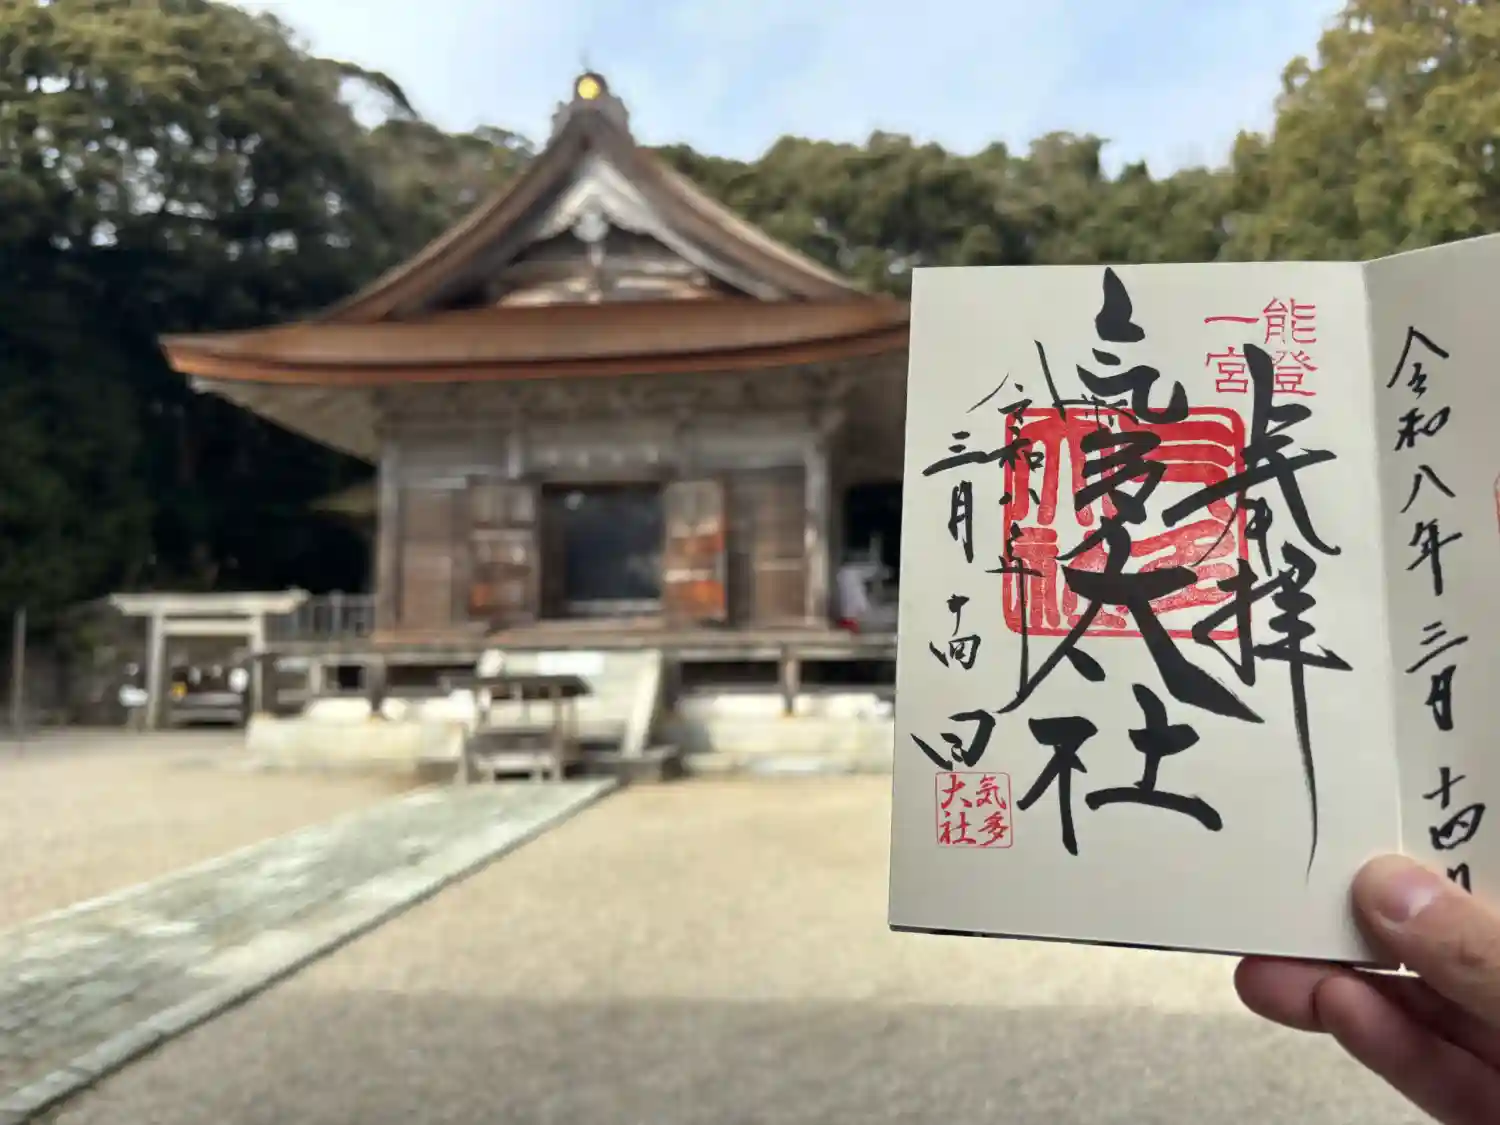 令和八年三月十四日
能登
一宮
奉拝
氣多大社
令和八年
三月十四日
気多
大社